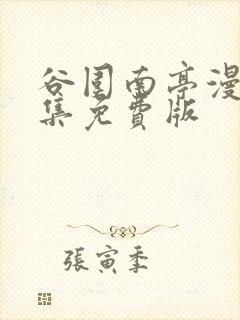 谷囤南亭漫
集免費版
張寅季